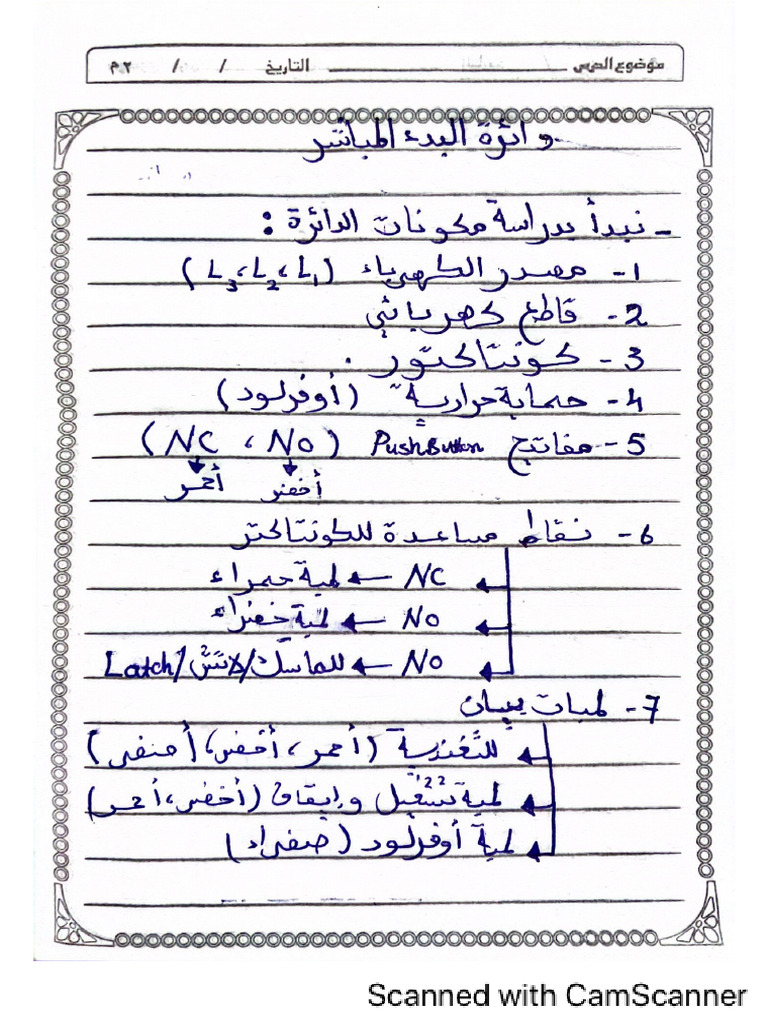 موضوع الدرس التاريخ / / ٢٠م
دائرة البدء المباشر
- نبدأ بدراسة مكونات الدائرة :
1- مصدر الكهرباء (L1، L2، L3)
2- قاطع كهربائي
3- كونتاكتور .
4- حماية حرارية (أوفرلود)
5- مفاتيح PushButton (NC ، NO)
أخضر أحمر
6- نقاط مساعدة للكونتاكتر
NC ← لمبة حمراء
NO ← لمبة خضراء
NO ← للماسك/لاتش/Latch
7- لمبات بيان
للتغذية (أحمر، أخضر، أصفر)
لمبة تشغيل وإيقاف (أخضر، أحمر)
لمبة أوفرلود (صفراء)
Scanned with CamScanner